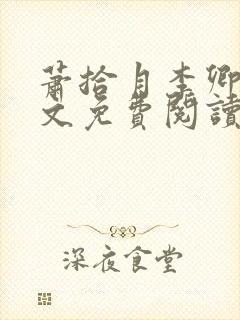 萧拾月李卿
文免费阅读
深夜食堂